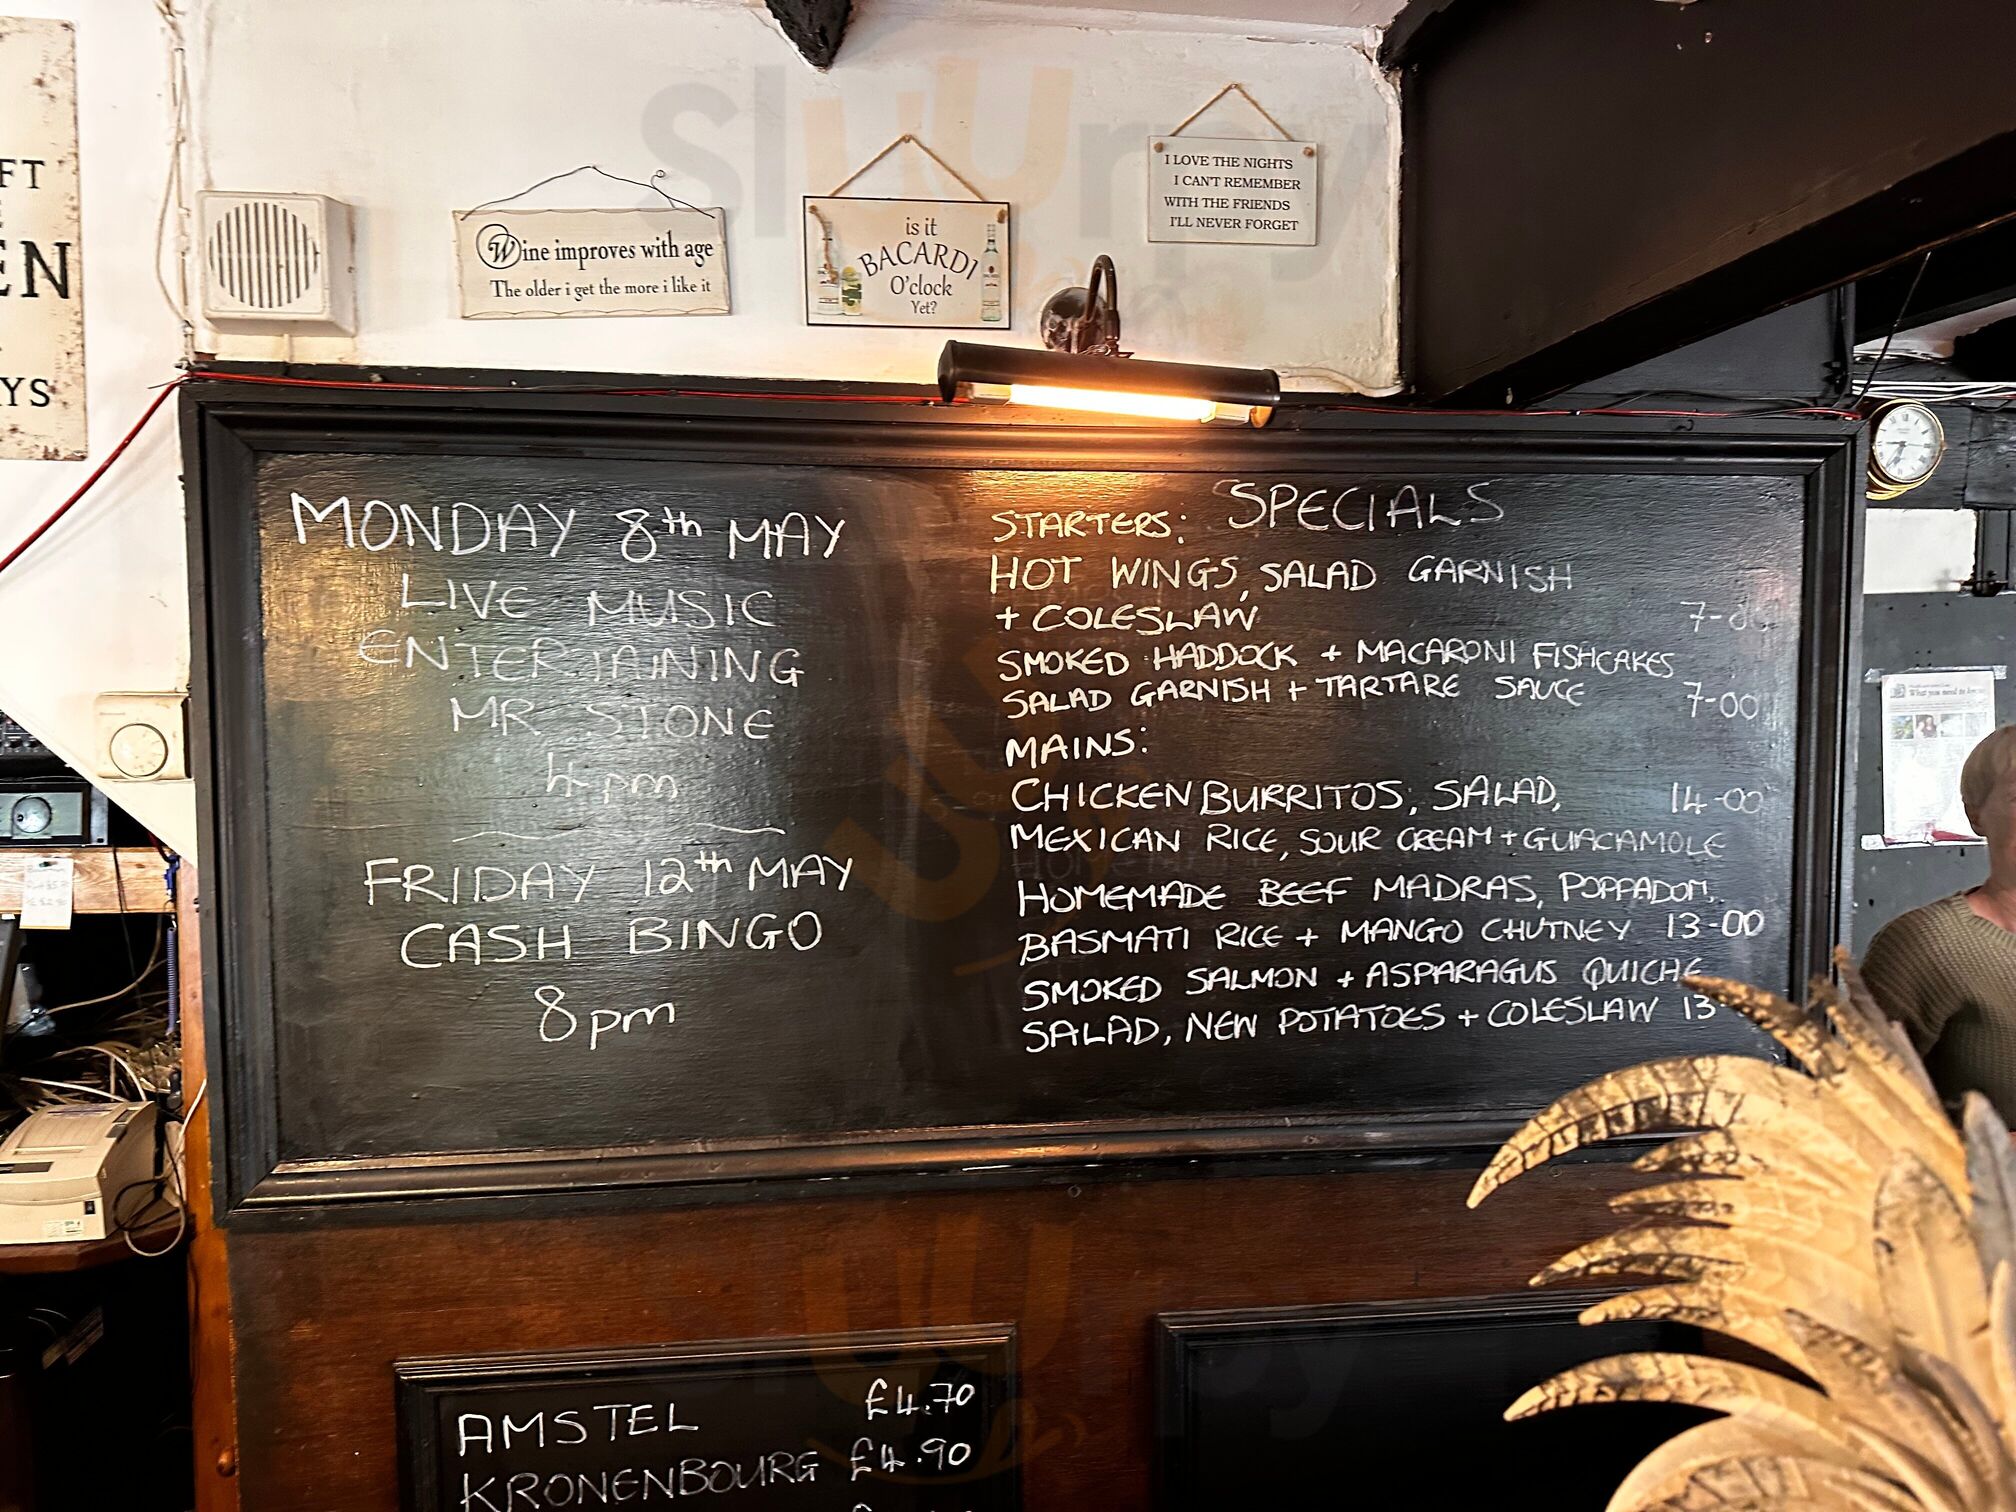 FT
EN
YS
Wine improves with age
The older i get the more i like it
is it
BACARDI
O'clock
Yet?
I LOVE THE NIGHTS
I CAN'T REMEMBER
WITH THE FRIENDS
I'LL NEVER FORGET
MONDAY 8th MAY
LIVE MUSIC
ENTERTAINING
MR STONE
4pm
FRIDAY 12th MAY
CASH BINGO
8pm
SPECIALS
STARTERS:
HOT WINGS, SALAD GARNISH
+ COLESLAW 7-00
SMOKED HADDOCK + MACARONI FISHCAKES
SALAD GARNISH + TARTARE SAUCE 7-00
MAINS:
CHICKEN BURRITOS, SALAD, 14-00
MEXICAN RICE, SOUR CREAM + GUACAMOLE
HOMEMADE BEEF MADRAS, POPPADOM,
BASMATI RICE + MANGO CHUTNEY 13-00
SMOKED SALMON + ASPARAGUS QUICHE
SALAD, NEW POTATOES + COLESLAW 13-
AMSTEL £4.70
KRONENBOURG £4.90
What you need to
slurpy